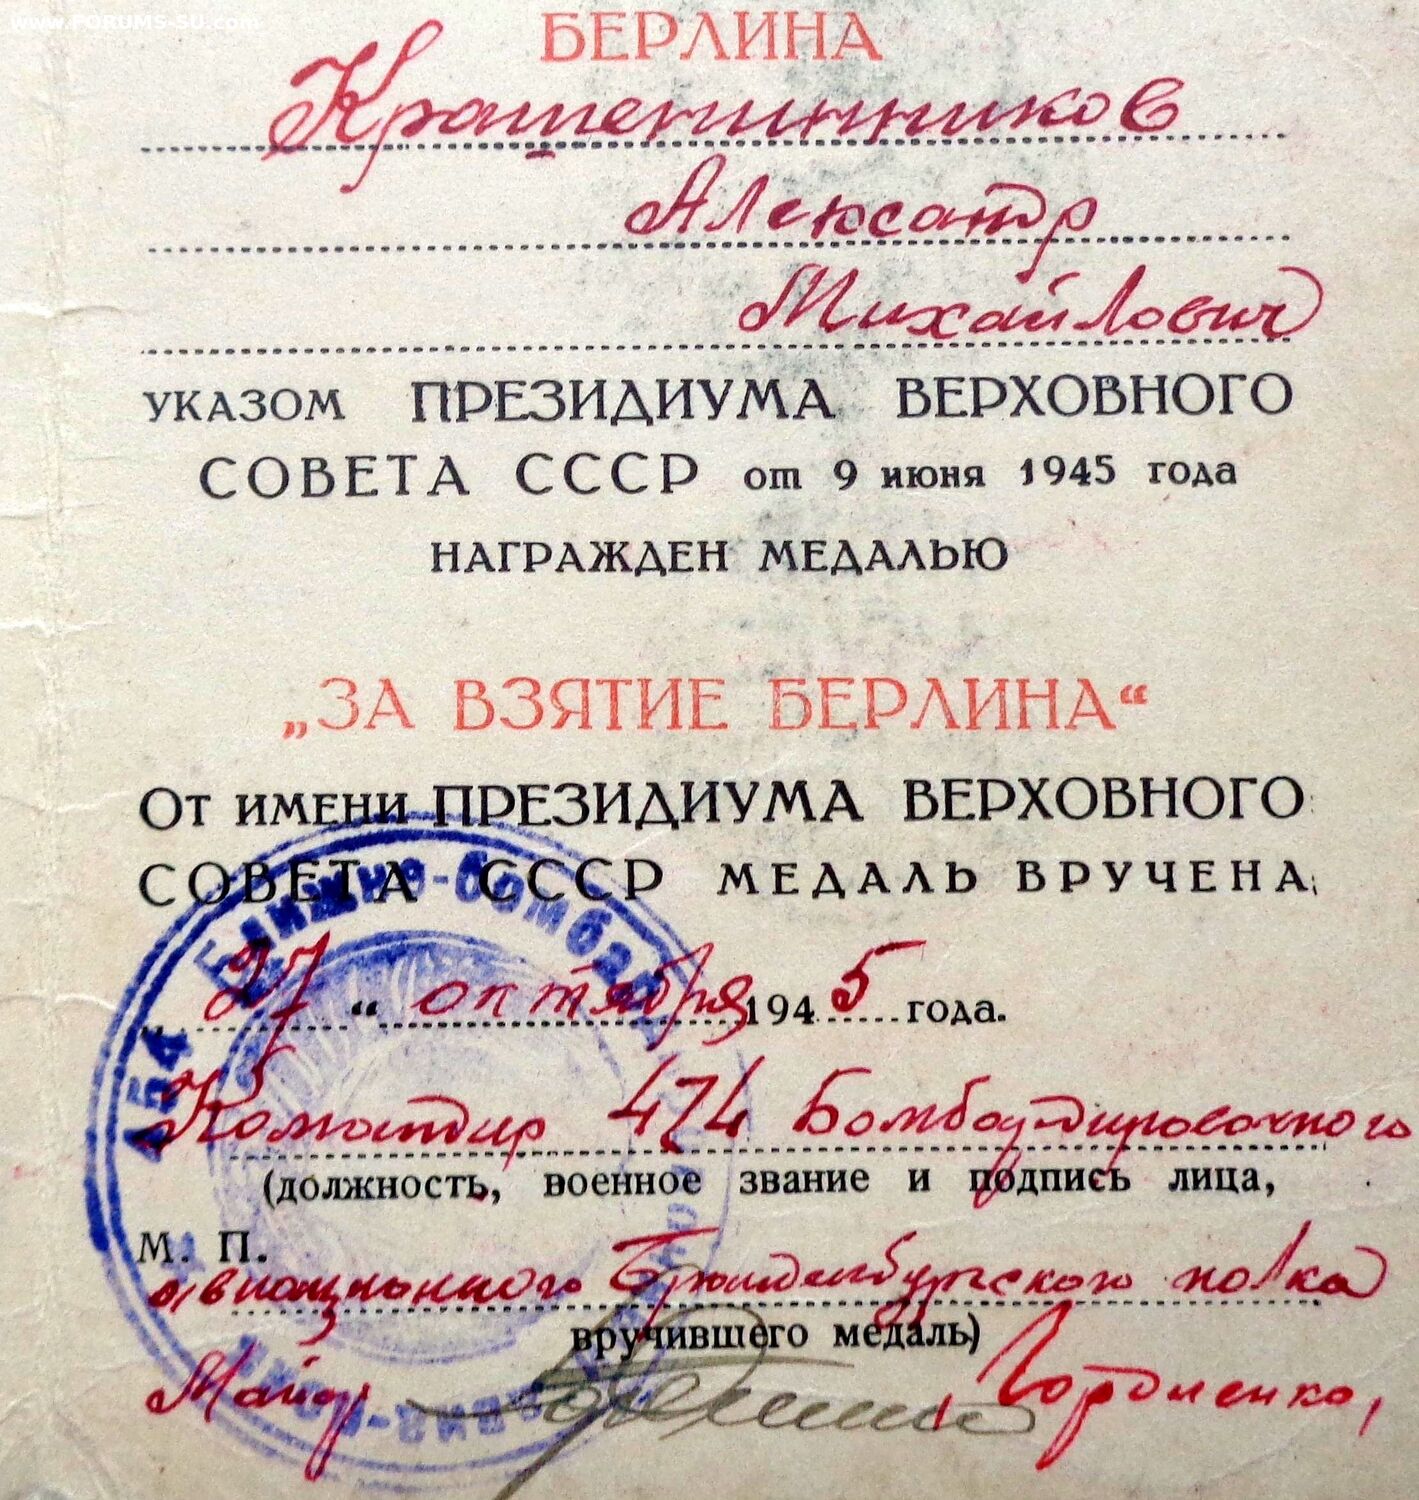 www.FORUMS-SU.com
БЕРЛИНА
Крашенинников
Александр
Михайлович
УКАЗОМ ПРЕЗИДИУМА ВЕРХОВНОГО
СОВЕТА СССР от 9 июня 1945 года
НАГРАЖДЕН МЕДАЛЬЮ
„ЗА ВЗЯТИЕ БЕРЛИНА“
ОТ ИМЕНИ ПРЕЗИДИУМА ВЕРХОВНОГО
СОВЕТА СССР МЕДАЛЬ ВРУЧЕНА
„27“ октября 1945 года.
Командир 474 Бомбардировочного
(должность, военное звание и подпись лица,
М. П.
авиационного Бранденбургского полка
вручившего медаль)
Майор Гордиенко,
Ближне-бомбар